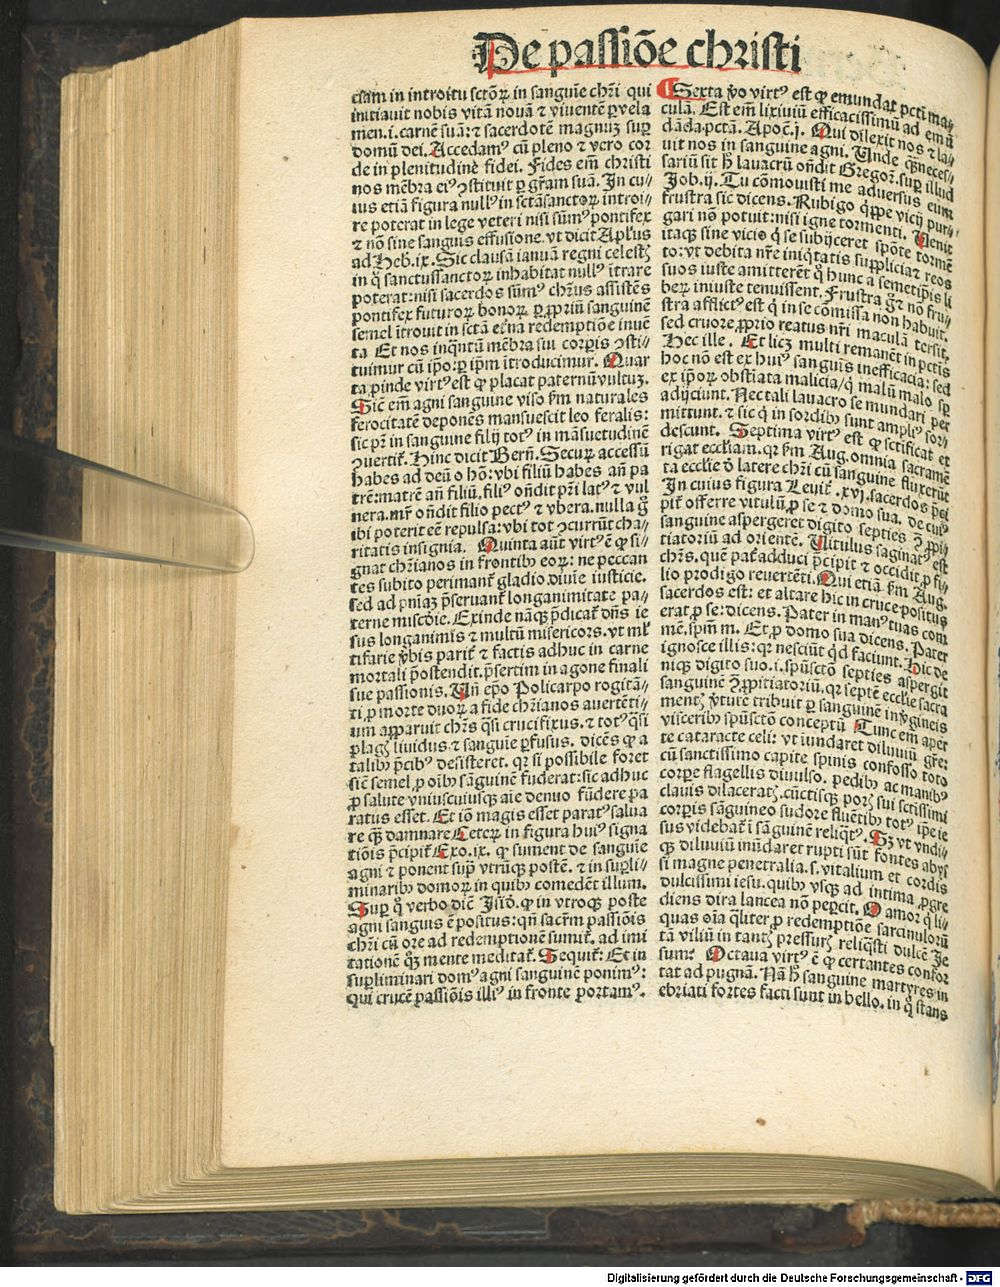 De passiōe christi
ciam in introitu sctōꝝ in sanguīe chr̄i qui
initiauit nobis vitā nouā ⁊ viuentē ꝑ vela
men.i.carnē suā:⁊ sacerdotē magnuꝫ suꝑ
domū dei. Accedamꝰ cū pleno ⁊ vero cor
de in plenitudinē fidei. Fides em̄ christi
nos mēbra eiꝰ ꝯstituit ꝑ gr̄am suā. In cu⸗
ius etiā figura nullꝰ in sctāsanctoꝝ introi⸗
re poterat in lege veteri nisi sūmꝰ pontifex
⁊ nō sine sanguīs effusione.vt dicit Apl̄us
ad Heb.ix. Sic clausā ianuā regni celestꝭ
in ꝙ̄ sanctussanctoꝝ inhabitat nullꝰ ītrare
poterat:nisi sacerdos sūmꝰ chr̄us assistēs
pontifex futuroꝝ bonoꝝ. ꝑ ꝓpriū sanguinē
semel ītrouit in sctā et̄na redemptiōe inuē
ta Et nos inqͣntū mēbra sui corꝑis ꝯsti⸗
tuimur cū ip̄o:ꝑ ip̄m ītroducimur. Quar
ta ꝓinde virtꝰ est ꝙ placat paternū vultuꝫ.
Sic em̄ agni sanguine viso ẜm naturales
ferocitatē deponēs mansuescit leo feralis:
sic pr̄ in sanguine filij totꝰ in māsuetudinē
ꝯuertit᷑. Hinc dicit Bern̄. Securꝰ accessū
habes ad deū o hō:vbi filiū habes an̄ pa
trē:matrē an̄ filiū.filiꝰ on̄dit pr̄i latꝰ ⁊ vul
nera.mr̄ on̄dit filio pectꝰ ⁊ vbera.nulla ḡ
ibi poterit eē repulsa:vbi tot ꝯcurrūt cha⸗
ritatis insignia. Quinta aūt virtꝰ ē ꝙ si⸗
gnat chr̄ianos in frontibꝰ eoꝝ: ne peccan
tes subito perimant᷑ gladio diuīe iusticie.
sed ad pn̄iaꝫ p̄seruant᷑ longanimitate pa⸗
terne misc̄die. Exinde nācꝫ p̄dicat᷑ dn̄s ie
sus longanimis ⁊ multū misericors.vt ml̄
tifarie v̄bis parit᷑ ⁊ factis adhuc in carne
mortali p̄ostendit.p̄sertim in agone finali
sue passionis. Vn̄ ep̄o Policarpo rogitā⸗
ti ꝓ morte duoꝝ a fide chr̄ianos auertēti⸗
um apparuit chr̄s qͣsi crucifixus.⁊ totꝰ qͣsi
plagꝭ liuidus ⁊ sanguīe ꝑfusus. dicēs ꝙ a
talibꝰ p̄cibꝰ desisteret. qꝛ si possibile foret
sic̄ semel ꝓ oībꝰ sāguinē fuderat:sic adhuc
ꝓ salute vniuscuiusqꝫ aīe denuo fūdere pa
ratus esset. Et iō magis esset paratꝰ salua
re qꝫ damnare Ceteꝝ in figura huiꝰ signa
tiōis p̄cipit᷑ Exo.ix. ꝙ sument de sanguīe
agni ⁊ ponent suꝑ vtrūqꝫ postē. ⁊ in suꝑli⸗
minaribꝰ domoꝝ in quibꝰ comedēt illum.
Suꝑ ꝙ̄ verbo dic̄ Isid̄. ꝙ in vtroqꝫ poste
agni sanguis ē positus:qn̄ sacr̄m passiōis
chr̄i cū ore ad redemptionē sumit᷑. ad imi
tationē qꝫ mente meditat᷑. Sequit᷑: Et in
suꝑliminari domꝰ agni sanguinē ponimꝰ:
qui crucē passiōis illiꝰ in fronte portamꝰ.
Sexta v̄o virtꝰ est ꝙ emundat pctī ma⸗
culā. Est em̄ lixiuiū efficacissimū ad emū
dāda pctā. Apoc̄.j. Qui dilexit nos ⁊ la⸗
uit nos in sanguine agni. Vnde qͣꝫ neces⸗
sariū sit h̄ lauacrū on̄dit Gregoꝝ. suꝑ illud
Job.ij. Tu cōmouisti me aduersus eum
frustra sic dicens. Rubigo qͥppe vicij pur⸗
gari nō potuit:nisi igne tormenti. Uenit
itaqꝫ sine vicio qͥ se subijceret spōte tormē
to:vt debita nr̄e iniqͥtatis supplicia ⁊ reos
suos iuste amitterēt qͥ hunc a semetip̄is li
beꝝ iniuste tenuissent. Frustra ḡ ⁊ nō fru⸗
stra afflictꝰ est qͥ in se cōmissa non habuit.
sed cruore ꝓprio reatus nr̄i maculā tersit.
Hec ille. Et licꝫ multi remanēt in pctīs
hoc nō est ex huiꝰ sanguīs inefficacia: sed
ex ip̄oꝝ obstīata malicia/qͥ malū malo sꝑ
adijciunt. Nec tali lauacro se mundari per
mittunt.⁊ sic qͥ in sordibꝰ sunt ampliꝰ sor⸗
descunt. Septima virtꝰ est ꝙ sctificat et
rigat eccl̄iam.qꝛ ẜm Aug.omnia sacramē
ta eccl̄ie d̄ latere chr̄i cū sanguine fluxerūt
In cuius figura Leuit᷑.xvi.sacerdos p̄ci
pit᷑ offerre vitulū ꝓ se ⁊ domo sua. de cuiꝰ
sanguine aspergeret digito septies ꝯ̄ ꝓpi⸗
tiatoriū ad orientē. Uitulus saginatꝰ est
chr̄s.quē pat᷑ adduci p̄cipit ⁊ occidit ꝓ fi⸗
lio prodigo reuertēti. Qui etiā ẜm Aug.
sacerdos est: et altare hic in cruce positus
erat ꝓ se:dicens. Pater in manꝰ tuas com
mē.spm̄ m. Et ꝓ domo sua dicens. Pater
ignosce illis:qꝛ nesciūt qͥd faciunt. Hic de
niqꝫ digito suo.i.spūsctō septies aspergit
sanguinē ꝯ̄ ꝓpitiatoriū.qꝛ septē eccl̄ie sacra
mentꝭ v̄tutē tribuit ꝑ sanguinē in v̄gineis
visceribꝰ spūsctō conceptū Tunc em̄ aper
te cataracte celi: vt īundaret diluuiū gr̄e:
cū sanctissimo capite spinis confosso toto
corꝑe flagellis diuulso. pedibꝰ ac manibꝰ
clauis dilaceratꝭ.cūctisqꝫ porꝭ sui sctissimi
corꝑis sāguineo sudore fluētibꝰ totꝰ ip̄e ie
sus videbat᷑ ī sāguinē reliqͣtꝰ. Sꝫ vt vndi⸗
qꝫ diluuiū inūdaret rupti sūt fontes abys
si magne penetralia.s.vitalium et cordis
dulcissimi iesu.quibꝰ vsqꝫ ad intima ꝓgre
diens dira lancea nōn peꝑcit. O amor qͥ li⸗
quas oīa qͣliter ꝓ redemptiōe sarcinulorū
tā viliū in tantꝭ pressurꝭ reliqͥsti dulcē Je
sum: Octaua virtꝰ ē ꝙ certantes confor
tat ad pugnā. Nā h̄ sanguine martyres in
ebriati fortes facti sunt in bello.in ꝙ̄ stans
Digitalisierung gefördert durch die Deutsche Forschungsgemeinschaft - DFG